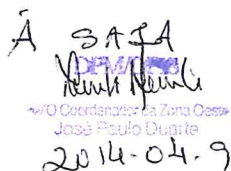 À SATA
O Coordenador da Zona Oeste
José Paulo Duarte
2014-04-9